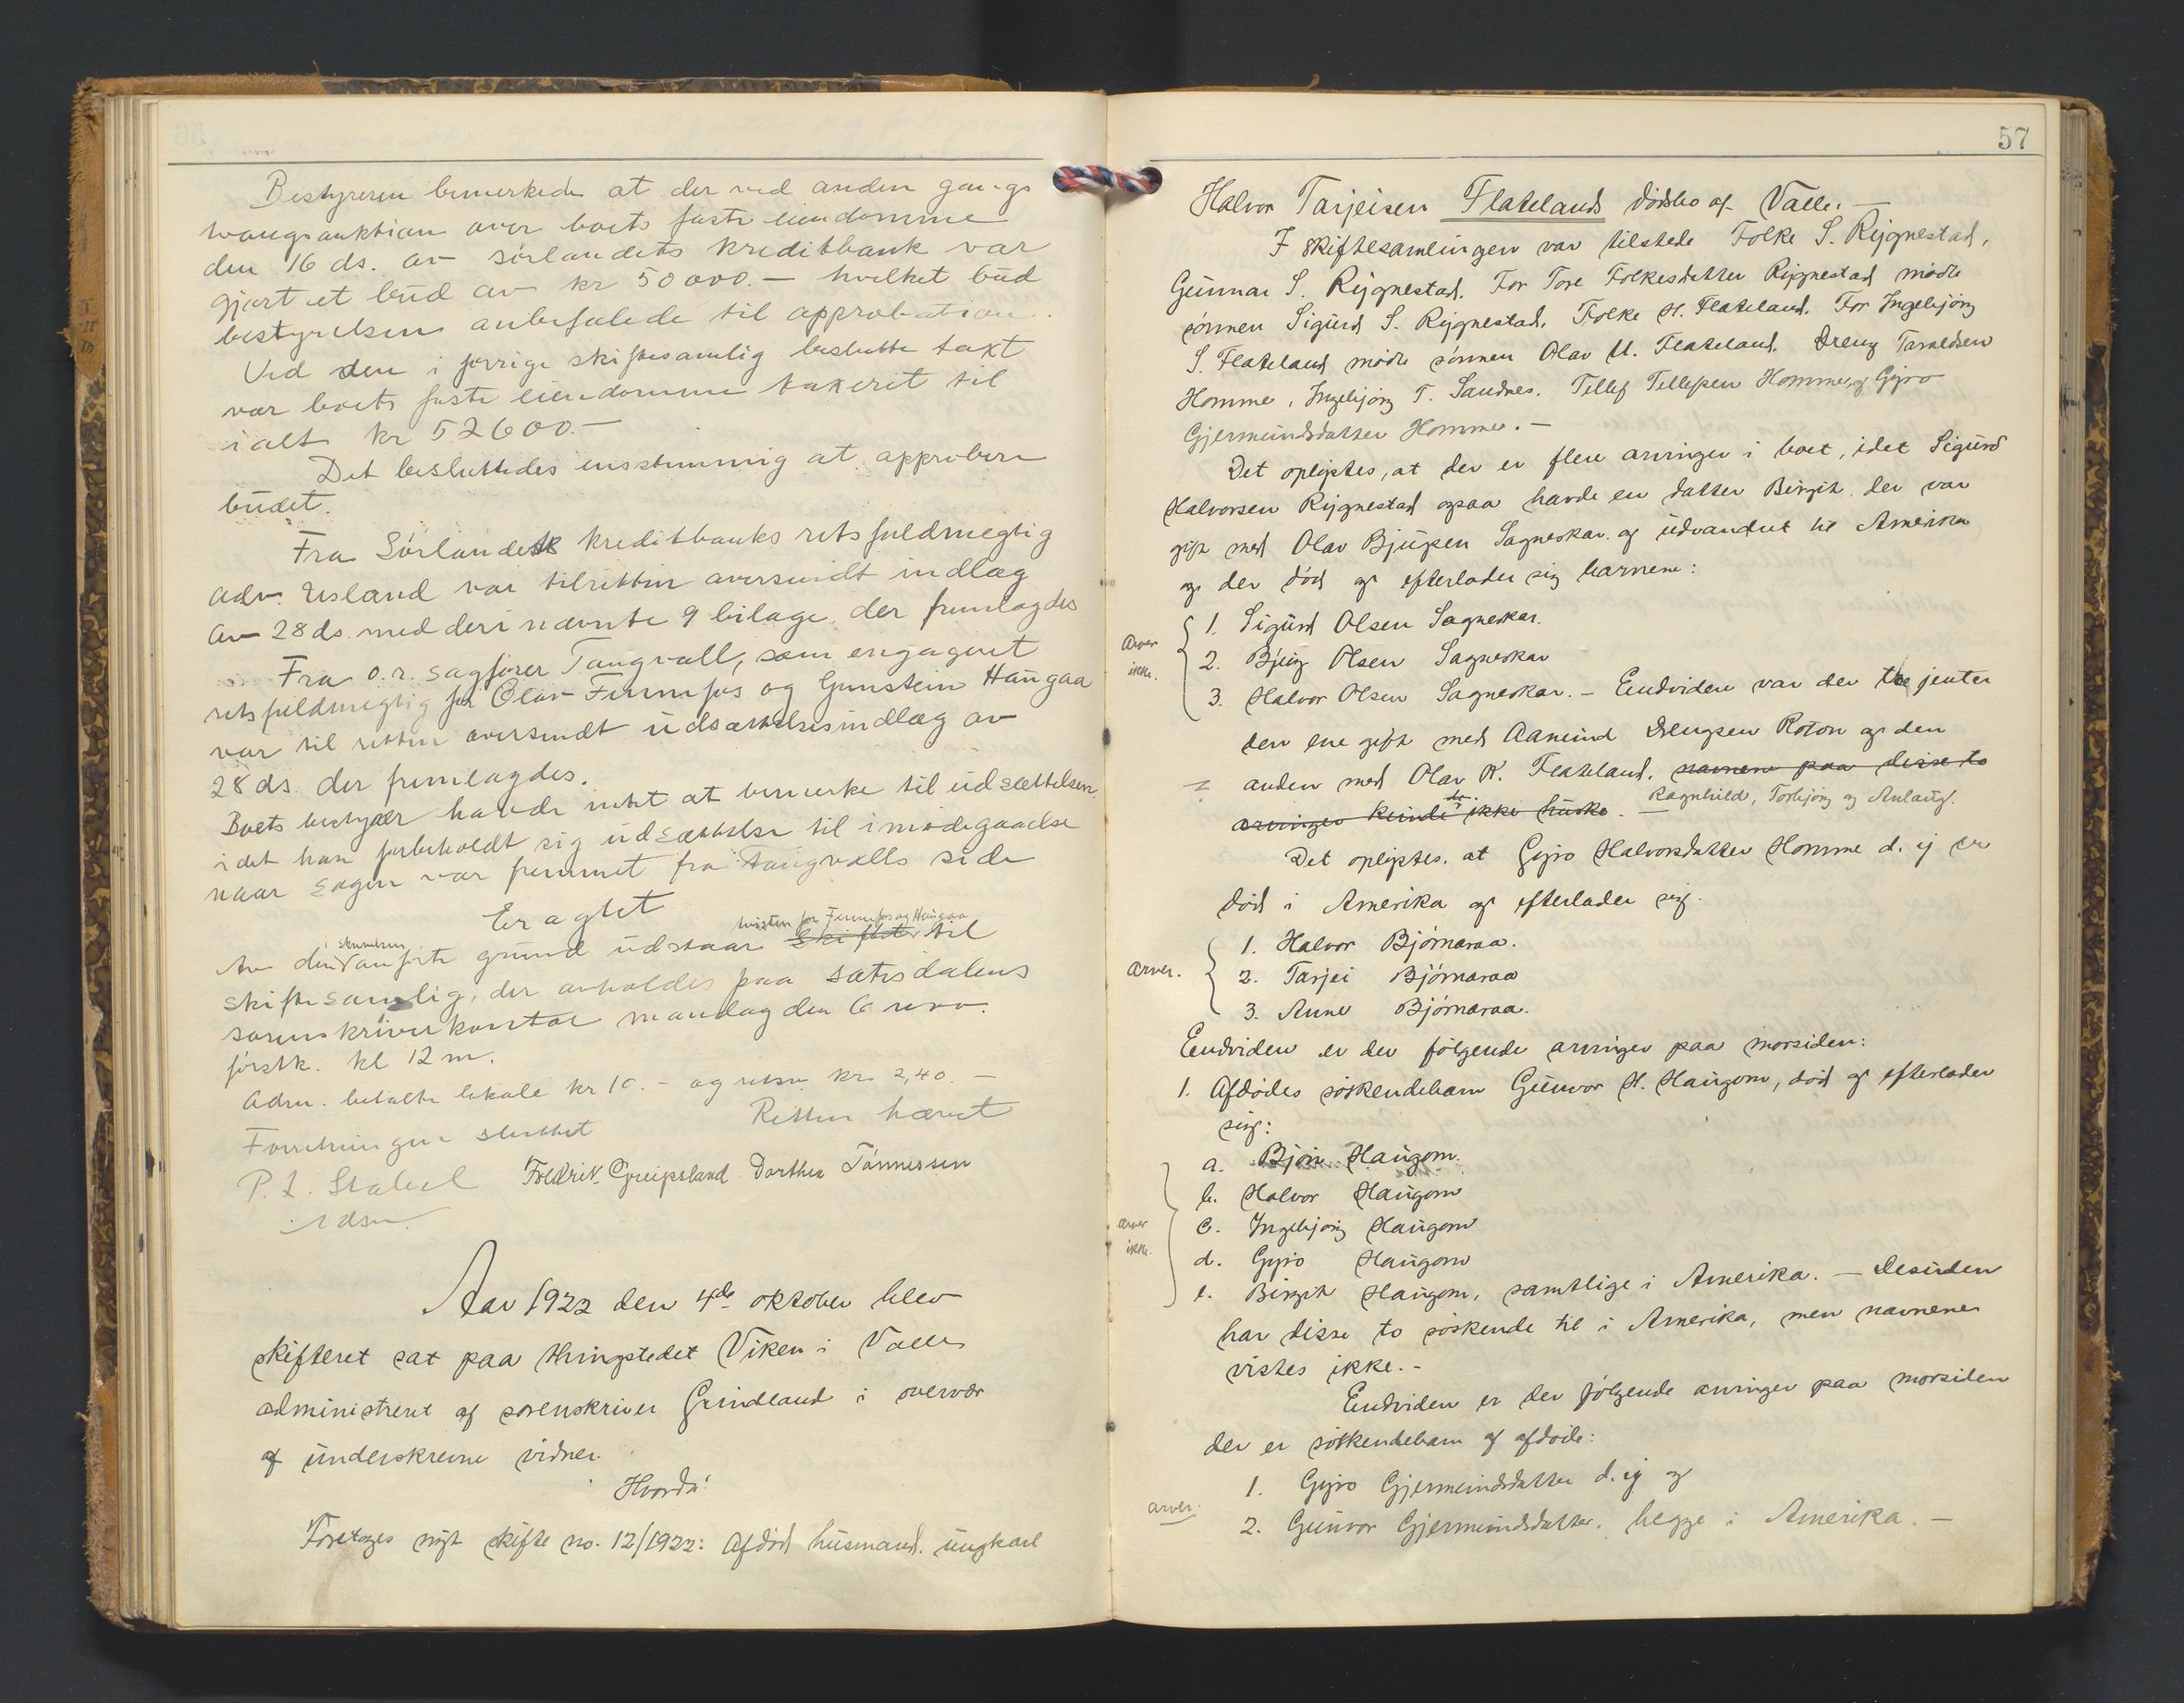 Bestyreren bemerkede at der ved anden gangs
tvangsauktion over boets faste eiendomme
den 16 ds. av sørlandets kreditbank var
gjort et bud av kr 50 000.- hvilket bud
bestyrelsen anbefalede til approbation.
Ved den i forrige skiftesamlig besluttte taxt
var boets faste eiendomme taxeret til
ialt kr 52600.-
Det besluttedes enstemmig at approbere
budet.
Fra Sørlandets kreditbanks retsfuldmegtig
Adv. Usland var tilretten oversendt indlæg
av 28 ds. med deri nævnte 9 bilage, der fremlagdes
Fra o.r. sagfører Tangvall, som engageret
retsfuldmegtig for Olav Fennefos og Gunstein Haugaa
var til retten oversendt udsættelsesindlæg av
28 ds. der fremlagdes.
Boets bestyrer havde intet at bemerke til udsættelsen
idet han forbeholdt sig udsættelse til imødegaaelse
naar sagen var fremmet fra Tangvalls side
Eragtet
Av den i skrivelsen anførte grund udstaar tvisten for Fennefos og Haugaa skiftet til
skiftesamlig, der avholdes paa Sætesdalens
sorenskriverkontor mandag den 6 nov.
førstk. kl 12 m.
Adm. betalte lokale kr 10.- og retsv. kr. 2,40.-
Forretningen sluttet Retten hævet
P. L. Stabel Fredrik Greipsland Dorthea Tønnessen
edsv.
Aar 1922 den 4de oktober blev
skifteret sat paa thingstedet Viken i Valle
administreret af sorenskriver Grindland i overvær
af underskrevne vidner.
Hvorda:
Foretoges nyt skifte no. 12/1922: Afdød husmand, ungkarl
57
Halvor Tarjeisen Flatelands dødsbo af Valle. —
I skiftesamlingen var tilstede Folke S. Rygnestad,
Gunnar S. Rygnestad. For Tore Folkesdatter Rygnestad mødte
sønnen Sigurd S. Rygnestad. Folke H. Flateland. For Ingebjørg
S. Flateland mødte sønnen Olav U. Flateland. Dreng Taraldsen
Homme, Ingebjørg T. Sandnes. Tellef Tellefsen Homme, og Gyro
Gjermundsdatter Homme. —
Det oplystes, at der er flere arvinger i boet, idet Sigurd
Halvorsen Rygnestad ogsaa havde en datter Birgit, der var
gift med Olav Bjugsen Sagneskar og udvandret til Amerika
og der død og efterlader sig barnene:
arver ikke.
1. Sigurd Olsen Sagneskar.
2. Bjug Olsen Sagneskar
3. Halvor Olsen Sagneskar. – Endvidere var der tre jenter
den ene gift med Aanund Drengsen Roton og den
anden med Olav K. Flateland. navnene paa disse to
arvinger kunde de ikke huske. — Ragnhild, Torbjørg og Anlaug.
Det oplystes, at Gyro Halvorsdatter Homme d. y er
død i Amerika og efterlader sig.
arver.
1. Halvor Bjørnaraa.
2. Tarjei Bjørnaraa
3. Anne Bjørnaraa.
Endvidere er der følgende arvinger paa morsiden:
1. Afdødes søskendebarn Gunvor H. Haugom, død og efterlader
sig:
arver ikke.
a. Bjørn Haugom.
b. Halvor Haugom
c. Ingebjørg Haugom
d. Gyro Haugom
e. Birgit Haugom, samtlige i Amerika. — Desuden
har disse to søskende til i Amerika, men navnene
vistes ikke. -
Endvidere er der følgende arvinger paa morsiden
der er søskendebarn af afdøde:
arver.
1. Gyro Gjermundsdatter d. y og
2. Gunvor Gjermundsdatter, begge i Amerika. —